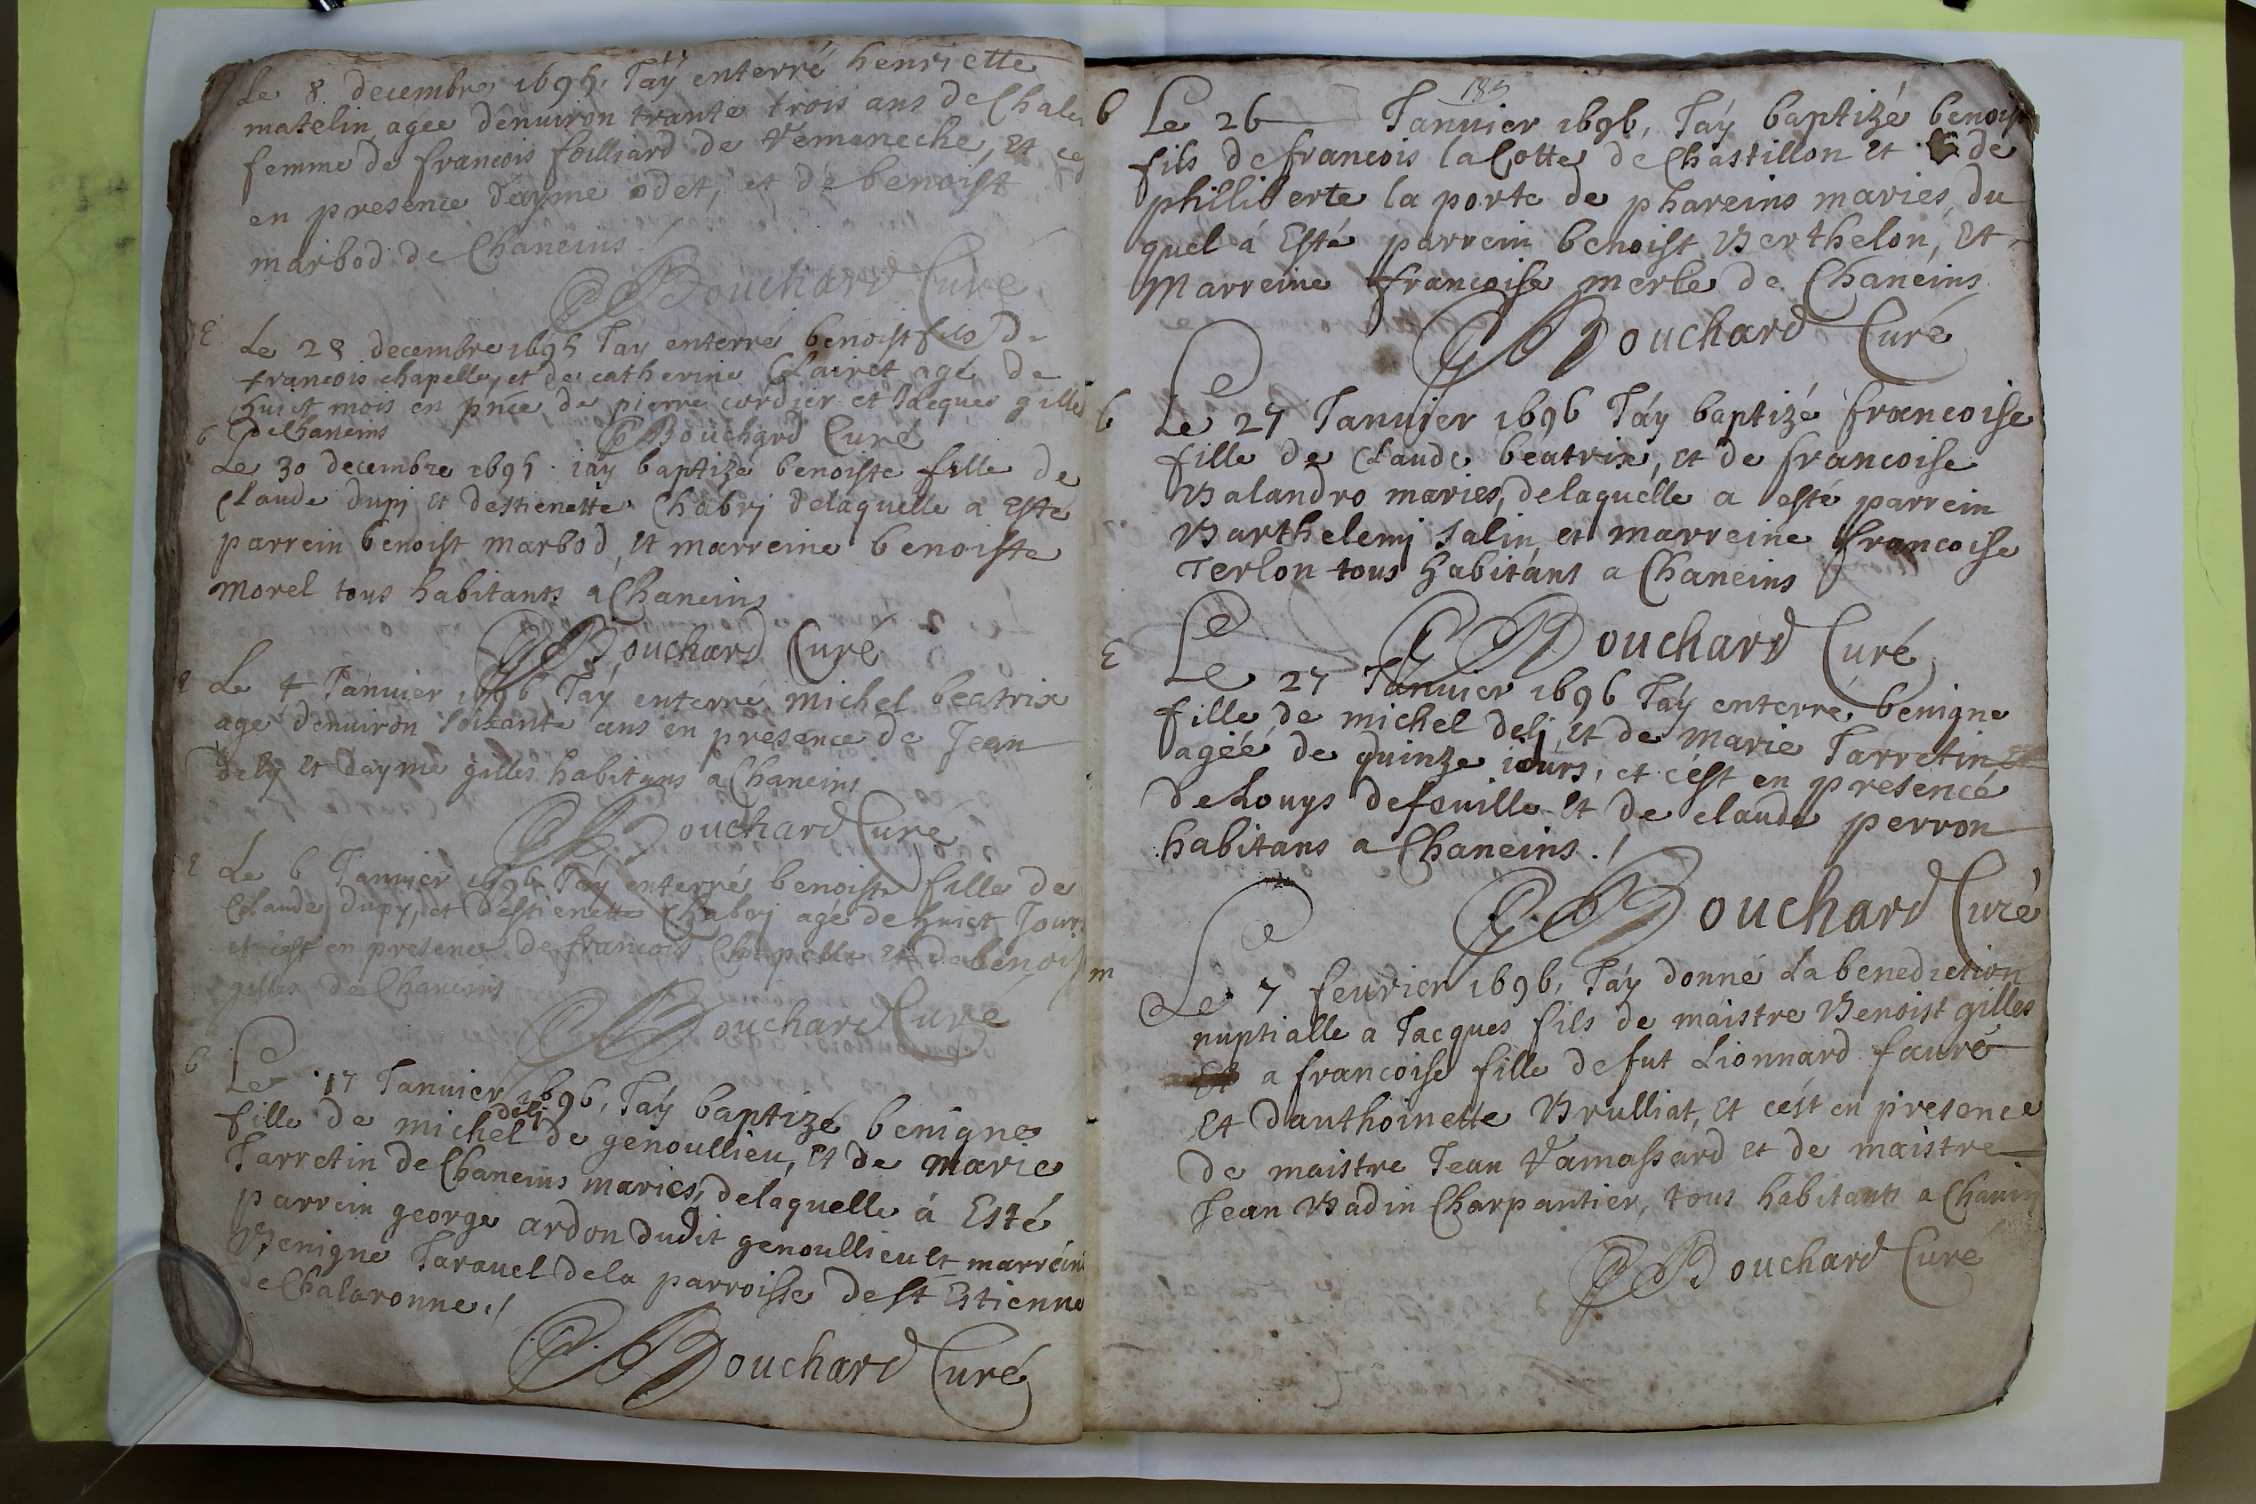 Le 8 decembre 1695 Jay enterré henriette
matelin agee denuiron trante trois ans de Chale
femme de francois foilliard de Vemaneche, et
en presence dayme odet, et de benoist
marbod de Chaneins
Bouchard Curé
E Le 28 decembre 1695 Jay enterré benoist fils de
francois chapelle, et de catherine Clairet agé de
huict mois en pnce de pierre cordier et Jacques gilles
de Chaneins Bouchard Curé
b Le 30 decembre 1695 iay baptizé benoiste fille de
Claude dupj et destienette Chabrj delaquelle a Esté
parrein benoist marbod, et marreine benoiste
morel tous habitants a Chaneins
Bouchard Curé
E Le 4 Januier 1696 Jay enterré michel beatrix
agé denuiron soixante ans en presence de Jean
dely et dayme gilles habitans a Chaneins
Bouchard Curé
E Le 6 Januier 1696 Jay enterré benoiste fille de
Claude dupy, et destienette Chabrj agé de huict Jours
et cest en presence de francois Chapelle et de benoist
gilles de Chaneins
Bouchard Curé
b Le 17 Januier 1696, Jay baptizé benigne
delj
fille de michel de genoullieu, et de marie
Tarretin de Chaneins maries, delaquelle á Esté
parrein george ardon dudit genoullieu et marreine
Benigne Tarauel dela parroisse de st Estienne
de Chalaronne ./
Bouchard Curé
185
b Le 26 Januier 1696, Jáy baptizé benoist
fils de francois la Cotte de Chastillon et de
philliberte la porte de phareins maries, du
quel á Esté parrein benoist Berthelon, et
Marreine francoise merle de Chaneins
Bouchard Curé
b Le 27 Januier 1696 Jáy baptizé francoise
fille de Claude beatrix, et de francoise
Balandro maries, delaquelle a esté parrein
Barthelemj Salin, et marreine francoise
Terlon tous habitans a Chaneins
Bouchard Curé
E Le 27 Januier 1696 Jáy enterré benigne
fille de michel delj, et de marie Tarretin
agéé de quinze iours, et cést en presence
de Louys defouille et de claude perron
habitans a Chaneins ./
Bouchard Curé
m Le 7 feurier 1696, Jáy donné La benediction
nuptialle a Jacques fils de maistre Benoist gilles
a francoise fille de fut Lionnard fauré
et danthoinette Brulliat, et cést en presence
de maistre Jean Vamassard et de maistre
Jean Badin Charpantier, tous habitants a Chanein
Bouchard Curé